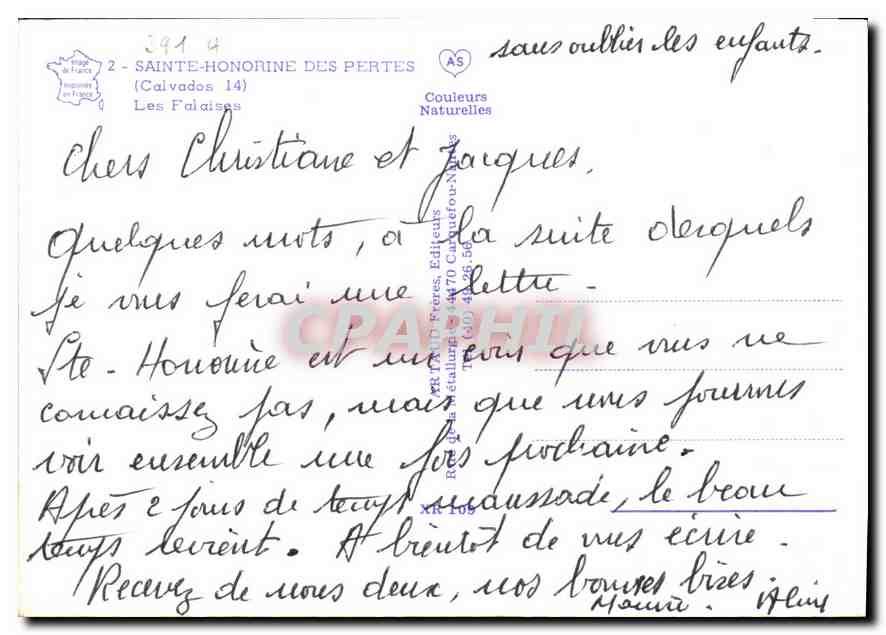 391 4
sans oublier les enfants.
Image de France
Imprimée en France
2 - SAINTE-HONORINE DES PERTES
(Calvados 14)
Les Falaises
AS
Couleurs
Naturelles
Chers Christiane et Jacques,
Quelques mots, à la suite desquels
je vous ferai une lettre -
Ste - Honorine est un coin que vous ne
connaissez pas, mais que nous pourrons
voir ensemble une fois prochaine.
Après 2 jours de temps maussade, le beau
temps revient. A bientôt de vous écrire -
Recevez de nous deux, nos bonnes bises.
ARTAUD Frères, Editeurs
Rue de la Métallurgie - 44470 Carquefou-Nantes
Tél. (40) 49.26.56
XR 109
CPAPHIL